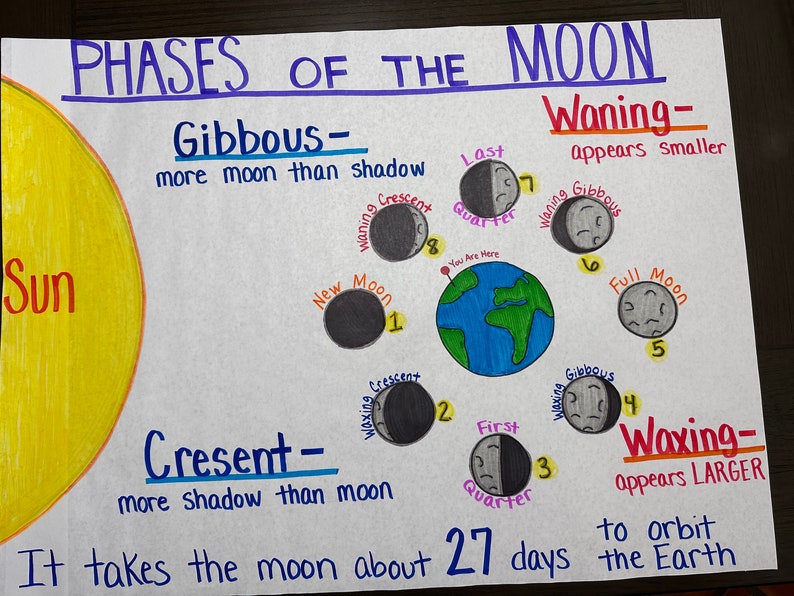 PHASES OF THE MOON
Gibbous-
more moon than shadow
Waning-
appears smaller
Sun
Last
Quarter
7
Waning Gibbous
6
Waning Crescent
8
You Are Here
New Moon
1
Full Moon
5
Waxing Crescent
2
First
Quarter
3
Waxing Gibbous
4
Cresent-
more shadow than moon
Waxing-
appears LARGER
It takes the moon about 27 days to orbit
the Earth